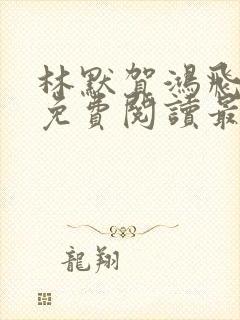 林默賀鴻飛
免費閱讀最
龍翔